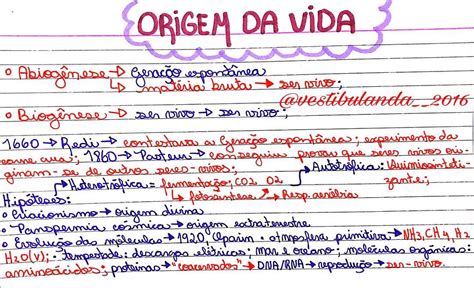 ORIGEM DA VIDA
• Abiogênese → Geração espontânea
↳ matéria bruta → ser vivo;
• Biogênese → ser vivo → ser vivo;
@vestibulanda__2016
1660 → Redi → contestava a Geração espontânea; experimento da
carne crua; 1860 → Pasteur → conseguiu provar que seres vivos ori
ginam-se de outros seres vivos. → Autotrófica: Quimiossinteti-
Hipóteses: → Heterotrófica = fermentação; CO2 O2 zante;
↳ fotossíntese → Resp. aeróbia
• Criacionismo → origem divina
• Panspermia cósmica → origem extraterrestre
• Evolução das moléculas → 1920, Oparin. atmosfera primitiva → NH3, CH4, H2
H2O(v); • Tempestade: descargas elétricas; mar e oceano; moléculas orgânicas:
aminoácidos; proteínas → "coacervados" → DNA/RNA → reprodução → ser vivo.